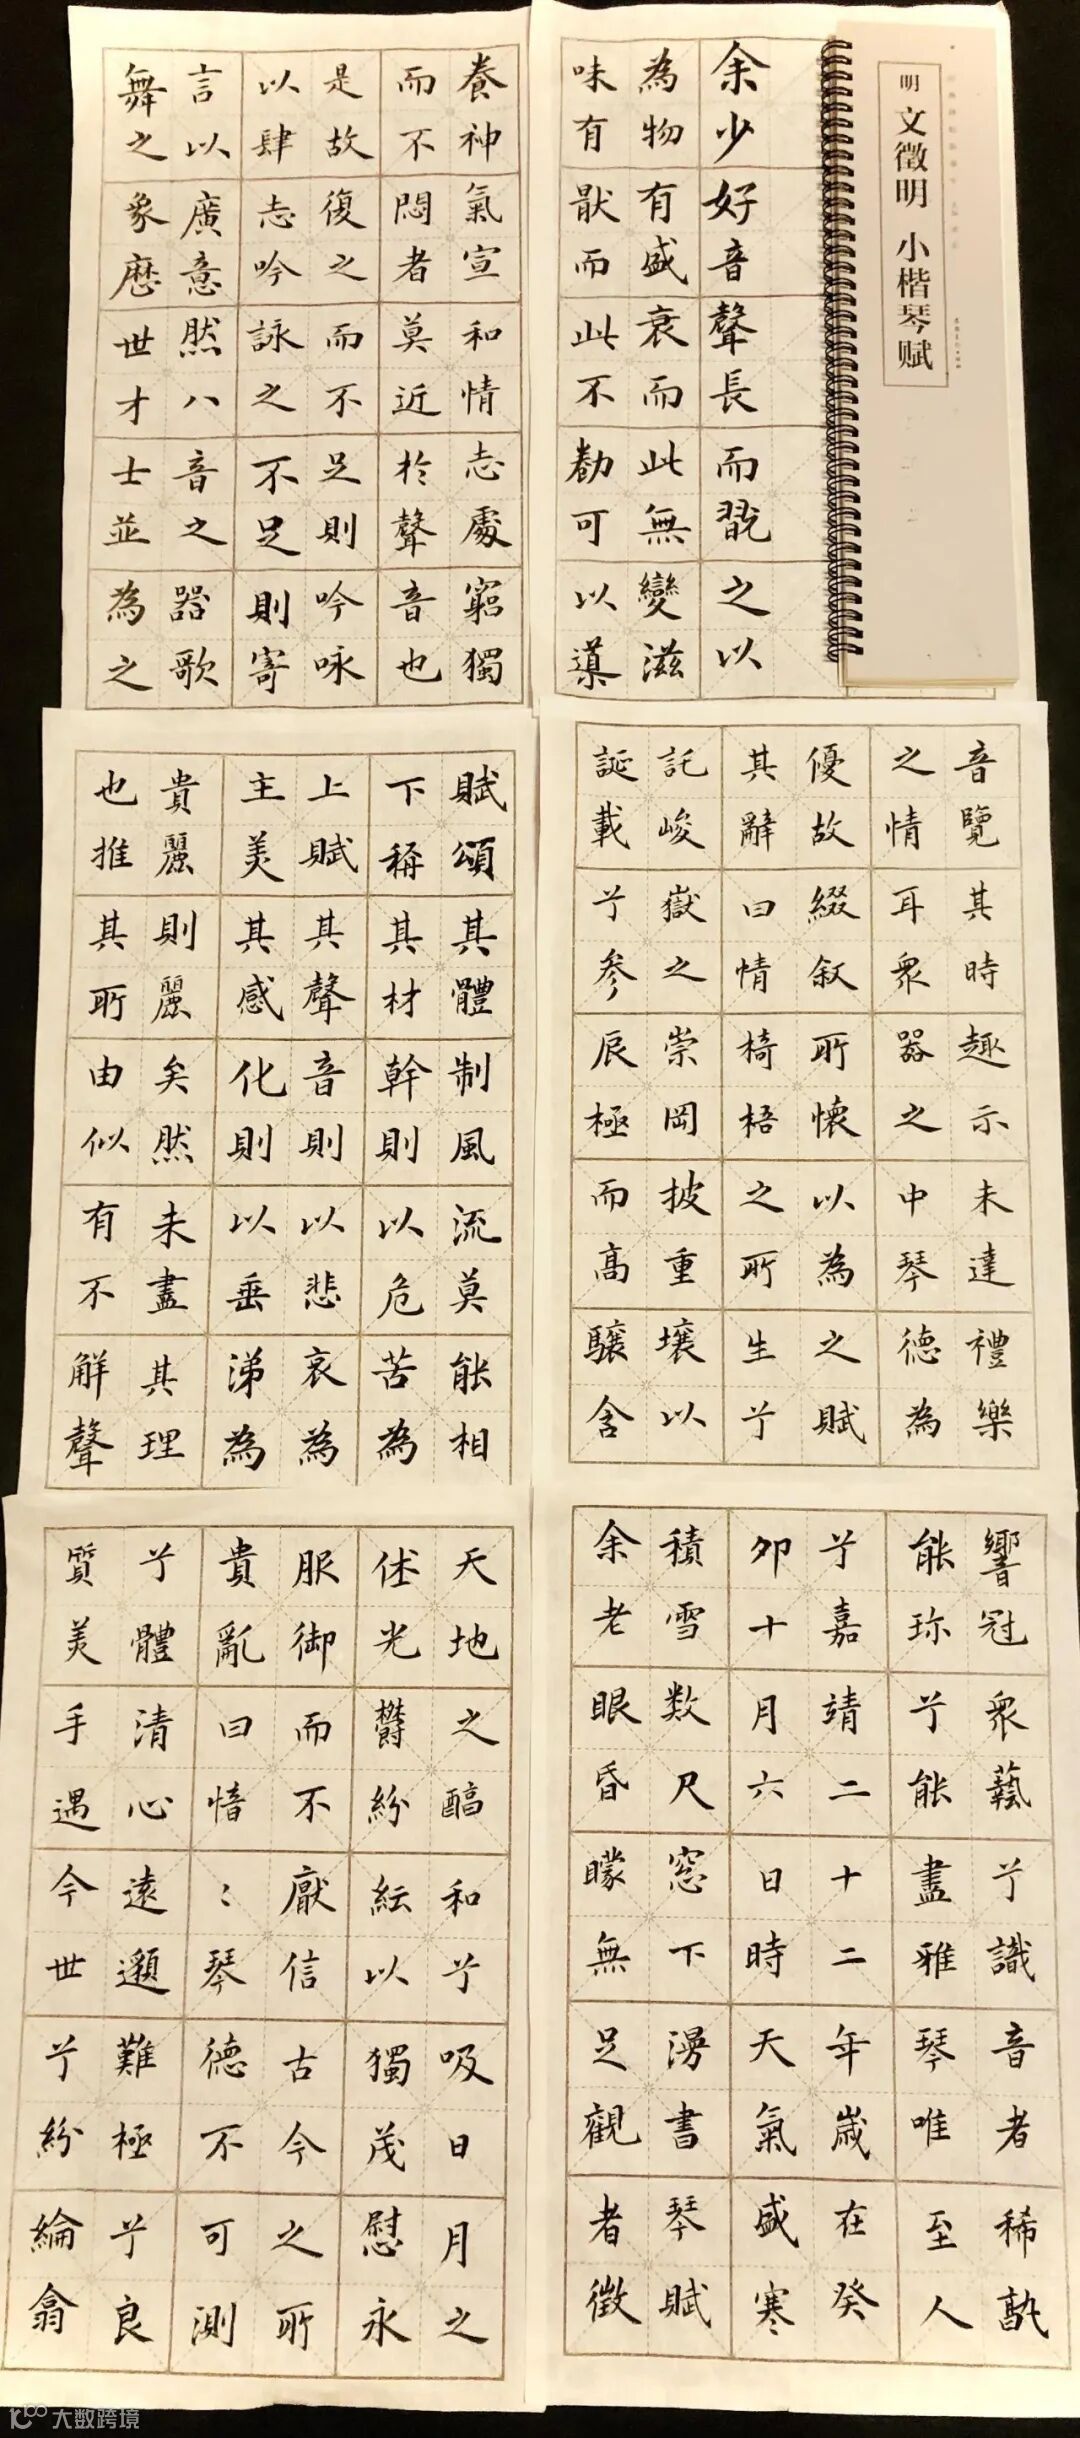 明 文徵明 小楷琴赋
余少好音聲長而翫之以
為物有盛衰而此無變滋
味有猒而此不勌可以導
養神氣宣和情志處窮獨
而不悶者莫近於聲音也
是故復之而不足則吟咏
以肆志吟詠之不足則寄
言以廣意然八音之器歌
舞之象歷世才士並為之
賦頌其體制風流莫能相
下稱其材幹則以危苦為
上賦其聲音則以悲哀為
主美其感化則以垂涕為
貴麗則麗矣然未盡其理
也推其所由似有不解聲
音覽其時趣示未達禮樂
之情耳衆器之中琴德為
優故綴叙所懷以為之賦
其辭曰情椅梧之所生兮
託峻嶽之崇岡披重壤以
誕載兮参辰極而高驤含
天地之醕和兮吸日月之
休光欝紛紜以獨茂慰永
服御而不厭信古今之所
貴亂曰愔〻琴德不可測
兮體清心遠邈難極兮良
質美手遇今世兮紛綸翕
響冠衆藝兮識音者稀孰
能珎兮能盡雅琴唯至人
兮嘉靖二十二年歲在癸
卯十月六日時天氣盛寒
積雪数尺窓下漫書琴賦
余老眼昏矇無足觀者徵
大数跨境